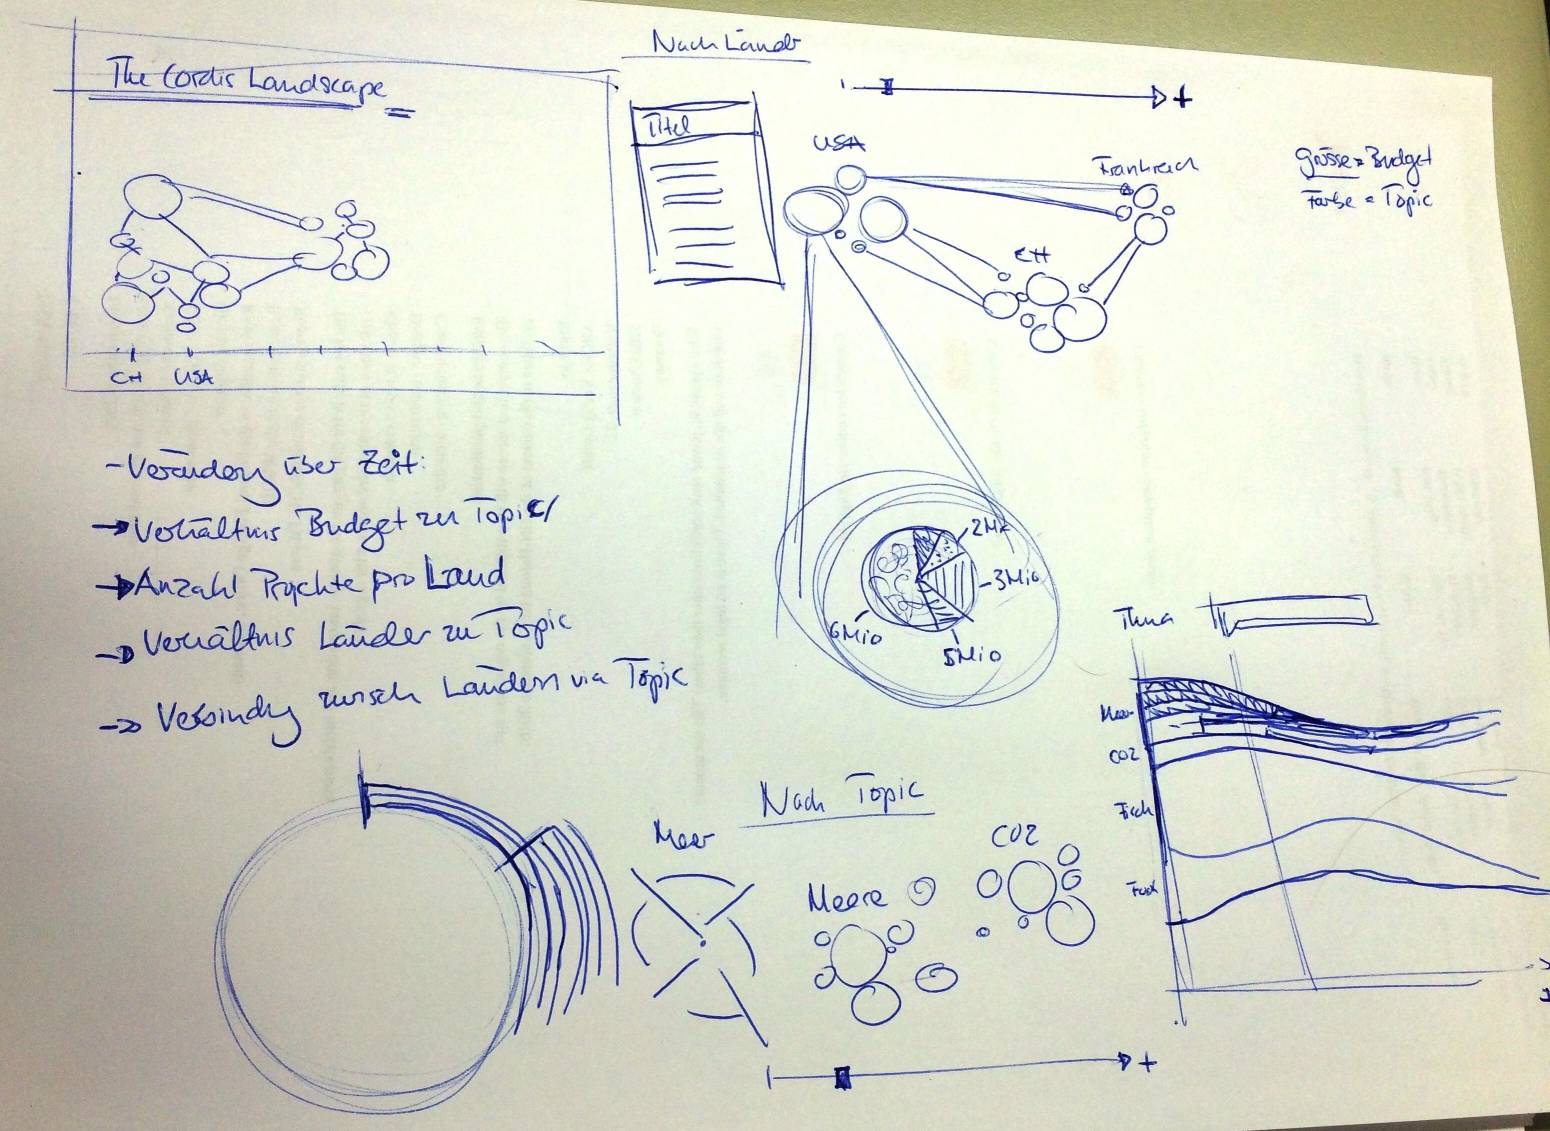 The Cordis Landscape
CH USA
Nach Länder
Titel
USA
Frankreich
CH
+
Grösse = Budget
Farbe = Topic
2Mio
3Mio
5Mio
6Mio
- Veränderg über Zeit:
→ Verhältnis Budget zu Topic/
→ Anzahl Projekte pro Land
→ Verhältnis Länder zu Topic
→ Verbindg zwisch Ländern via Topic
Thema
Meer
CO2
Fisch
Nach Topic
Meer
Meere
CO2
+